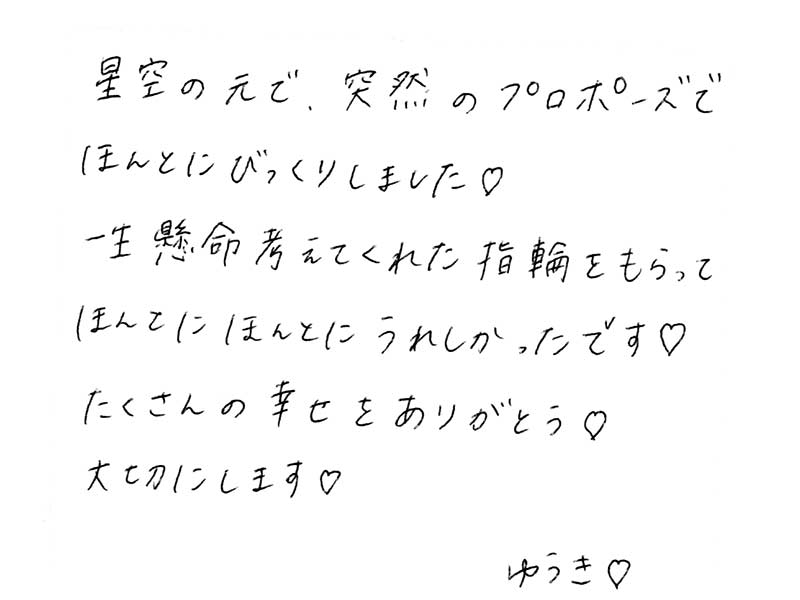 星空の元で、突然のプロポーズで
ほんとにびっくりしました♡
一生懸命考えてくれた指輪をもらって
ほんとにほんとにうれしかったです♡
たくさんの幸せをありがとう♡
大切にします♡
ゆうき♡